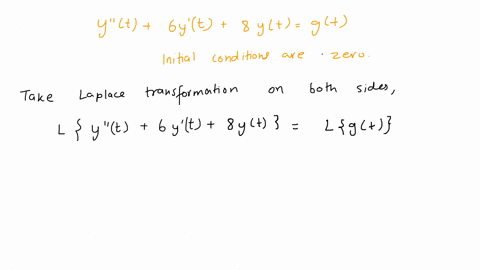 y''(t) + 6y'(t) + 8 y(t) = g(t)
Initial conditions are . zero.
Take Laplace transformation on both sides,
L { y''(t) + 6 y'(t) + 8 y(t) } = L {g(t)}